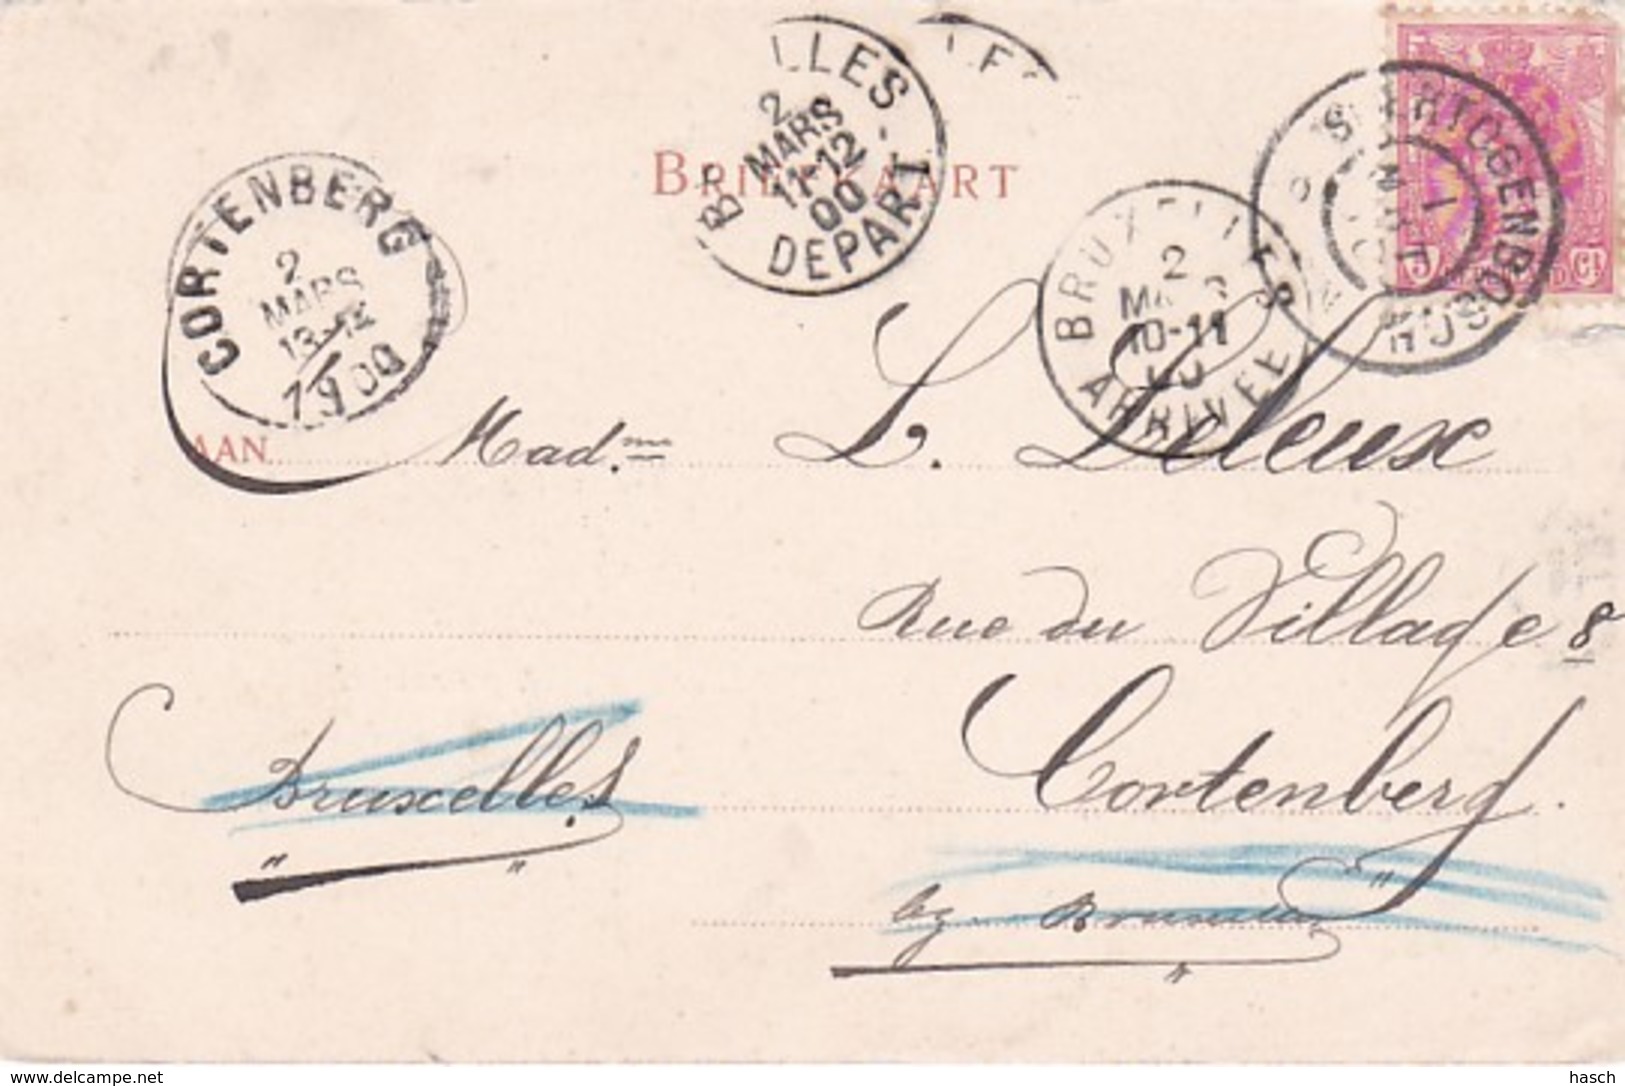 LLES
LES
2
MARS
11-12
00
DEPART
BRIEFKAART
'S HERTOGENBOSCH
1
5 Ct
CORTENBERG
2
MARS
13-
1900
BRUXELLES
2
MARS
10-11
00
ARRIVEE
AAN
Mad.me L. Deleux
Rue du Village 8
Cortenberg.
Bruxelles
" "
bij Brussel
"
www.delcampe.net
hasch